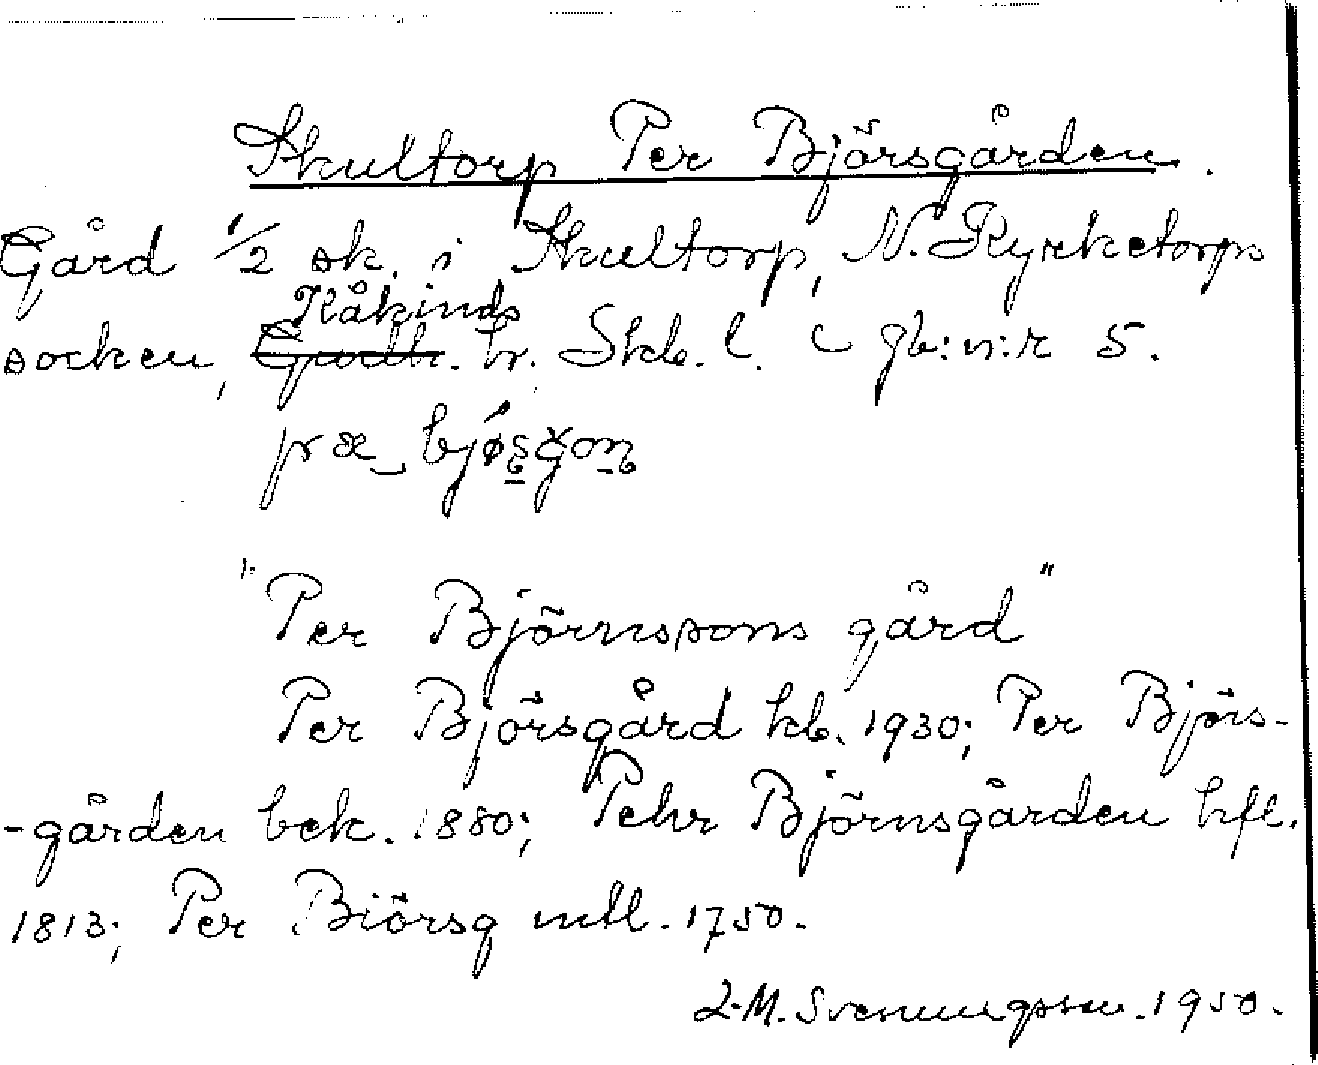 Skultorp Per Björsgården.
Gård 1/2 sk. i Skultorp, N. Kyrketorps
Kåkinds
socken, Gudh. hr. Skb. l. C gb:n:r 5.
"Per Björnssons gård"
Per Björsgård kb. 1930; Per Björs-
-gården bek. 1880; Pehr Björnsgården hfl.
1813; Per Biörsg mtl. 1750.
L-M. Svenungsson. 1950.